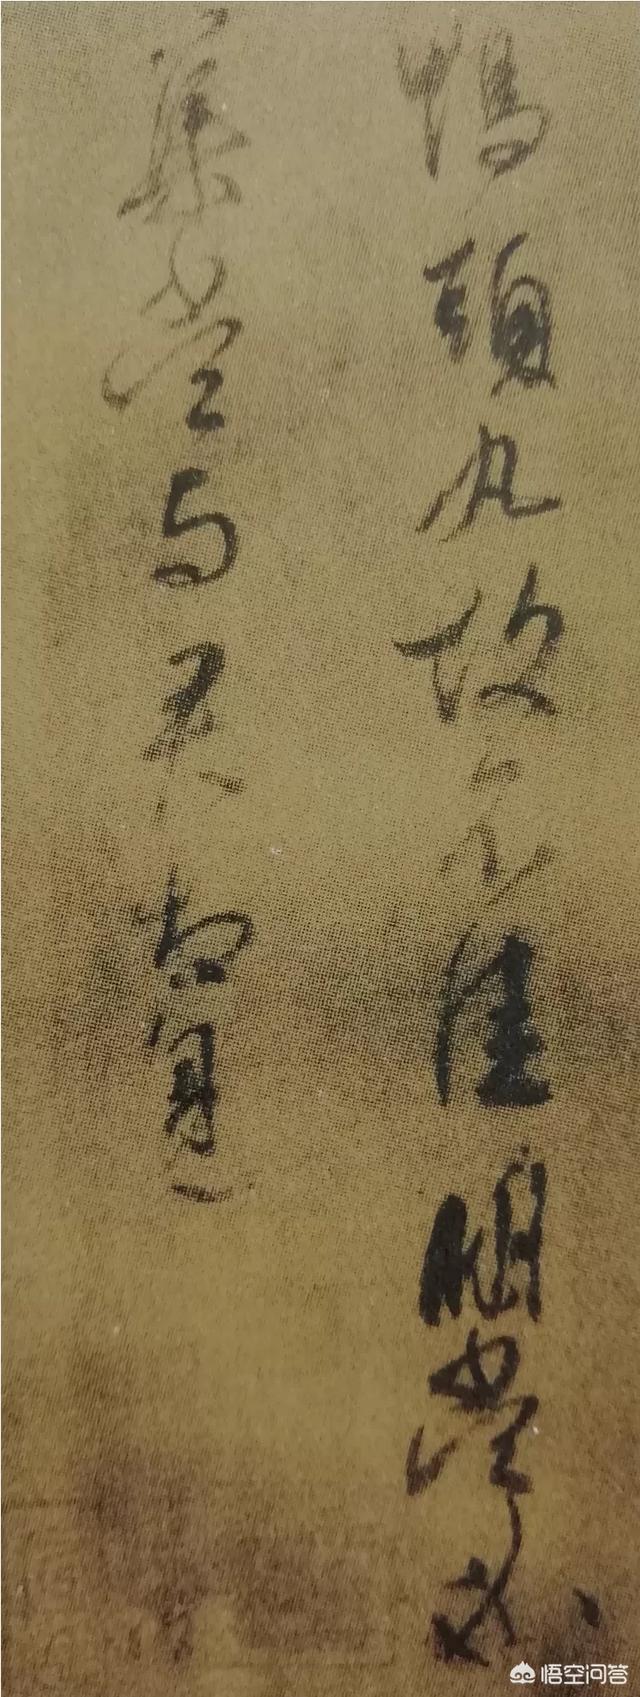 鴨頭丸故不佳明當必
集當與君相見
悟空问答